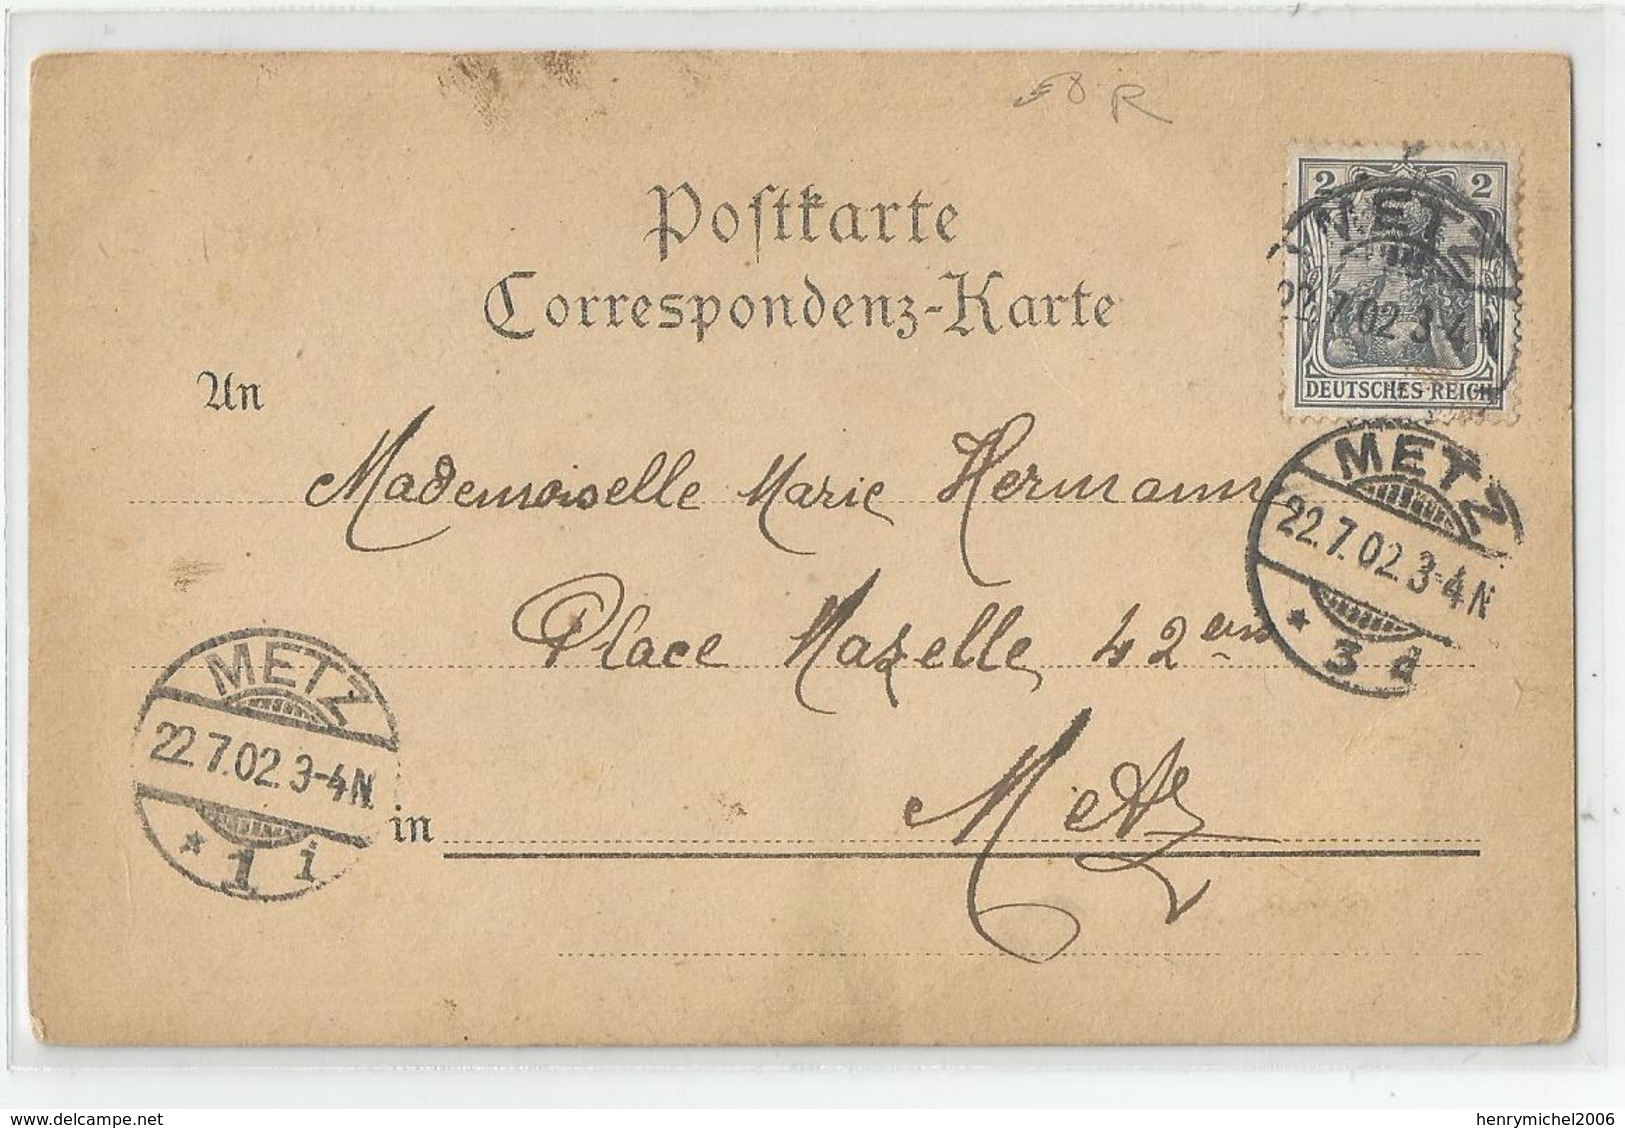 R
Postkarte
Correspondenz-Karte
2 2
METZ
22.7.02 3-4 N
DEUTSCHES REICH
An
Mademoiselle Marie Hermann
METZ
22.7.02. 3-4 N
* 3 d
Place Mazelle 42
METZ
22.7.02. 3-4 N
* 1 i
in Metz
www.delcampe.net
henrymichel2006